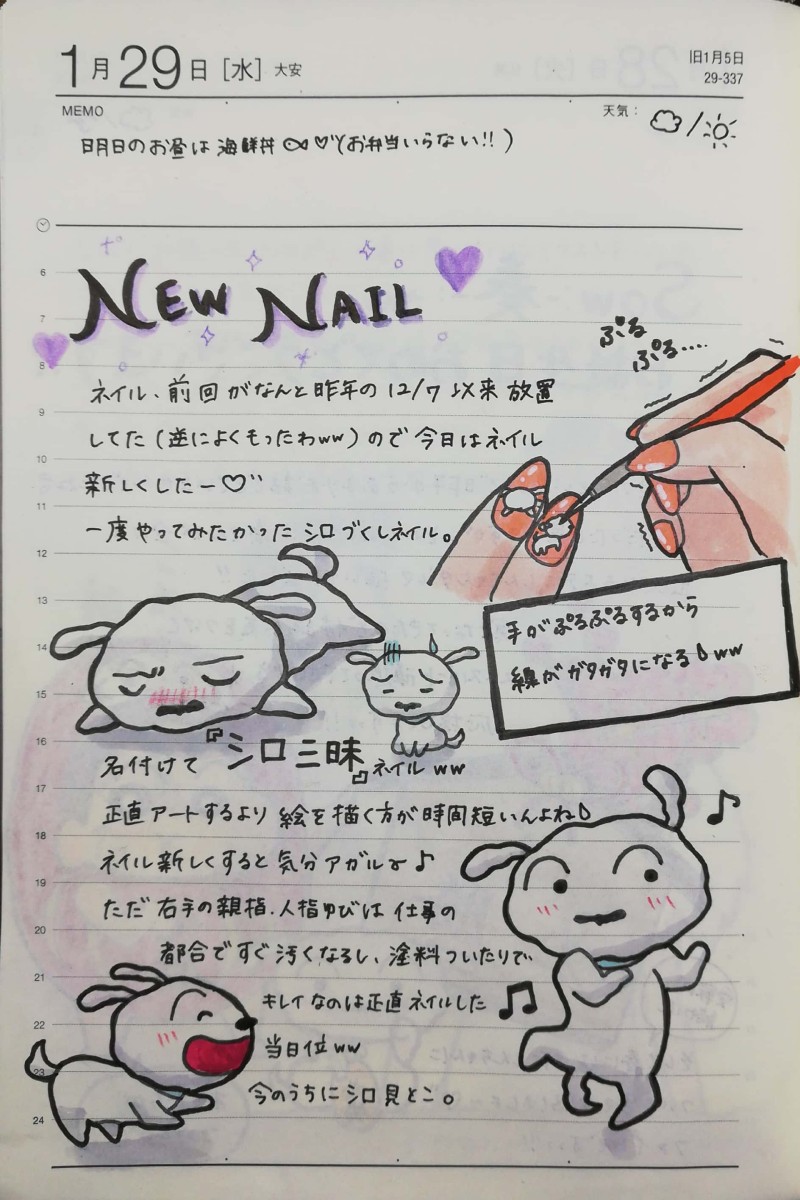 1月29日[水] 大安
旧1月5日
29-337
MEMO
天気：
明日のお昼は海鮮丼♡(お弁当いらない!!)
NEW NAIL
6
7
8
9
10
11
12
13
14
15
16
17
18
19
20
21
22
23
24
ネイル、前回がなんと昨年の12/7以来放置
してた(逆によくもったわww)ので今日はネイル
新しくしたー♡
一度やってみたかったシロづくしネイル。
ぷる
ぷる....
手がぷるぷるするから
線がガタガタになるww
名付けて『シロ三昧』ネイルww
正直アートするより絵を描く方が時間短いんよね
ネイル新しくすると気分アガル〜♪
ただ右手の親指.人指ゆびは仕事の
都合ですぐ汚くなるし、塗料ついたりで
キレイなのは正直ネイルした
当日位ww
今のうちにシロ見とこ。